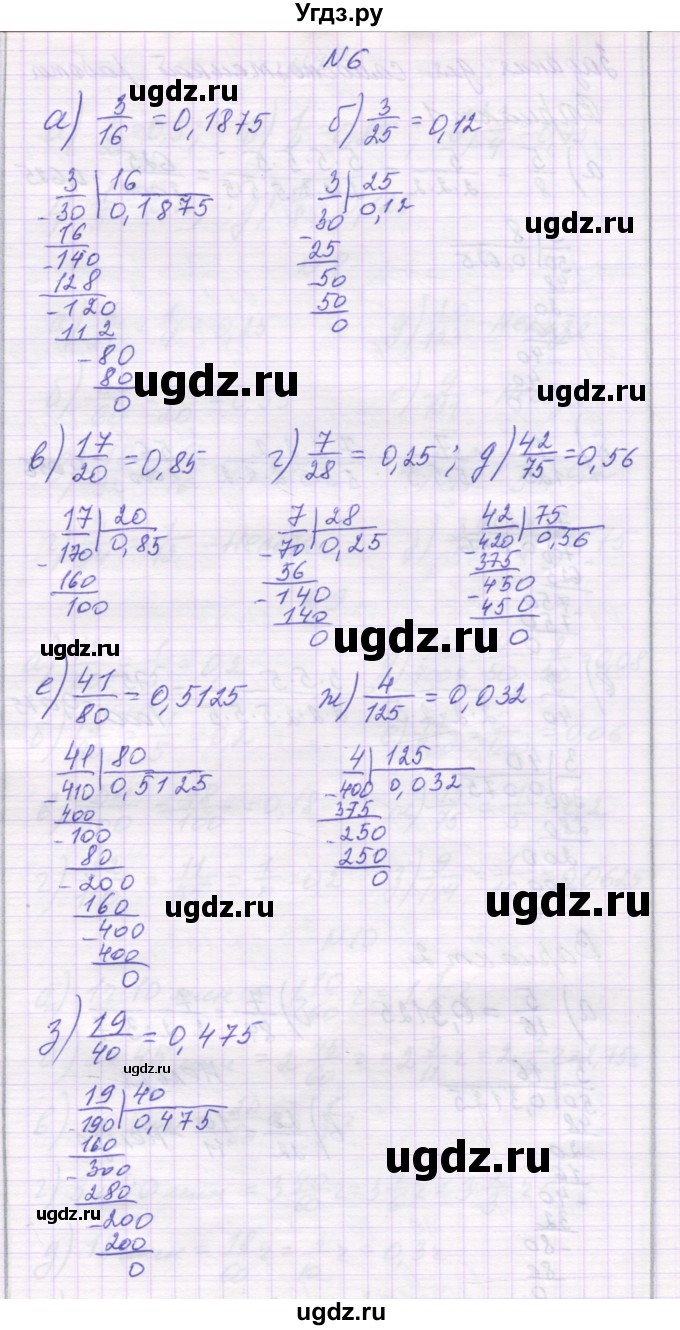 Угдз.ру
N6
ugdz.ru ugdz.ru
а) 3/16 = 0,1875 б) 3/25 = 0,12
3 | 16
-30 | 0,1875
16
-140
128
-120
112
-80
80
0
3 | 25
-30 | 0,12
25
-50
50
0
ugdz.ru ugdz.ru
ugdz.ru ugdz.ru
в) 17/20 = 0,85 г) 7/28 = 0,25; д) 42/75 = 0,56
17 | 20
-170 | 0,85
160
100
7 | 28
-70 | 0,25
56
-140
140
0
42 | 75
-420 | 0,56
375
-450
450
0
ugdz.ru
е) 41/80 = 0,5125 ж) 4/125 = 0,032
41 | 80
-410 | 0,5125
400
-100
80
-200
160
-400
400
0
4 | 125
-400 | 0,032
375
-250
250
0
ugdz.ru ugdz.ru
з) 19/40 = 0,475
ugdz.ru
19 | 40
-190 | 0,475
160
-300
280
-200
200
0
ugdz.ru
ugdz.ru
ugdz.ru